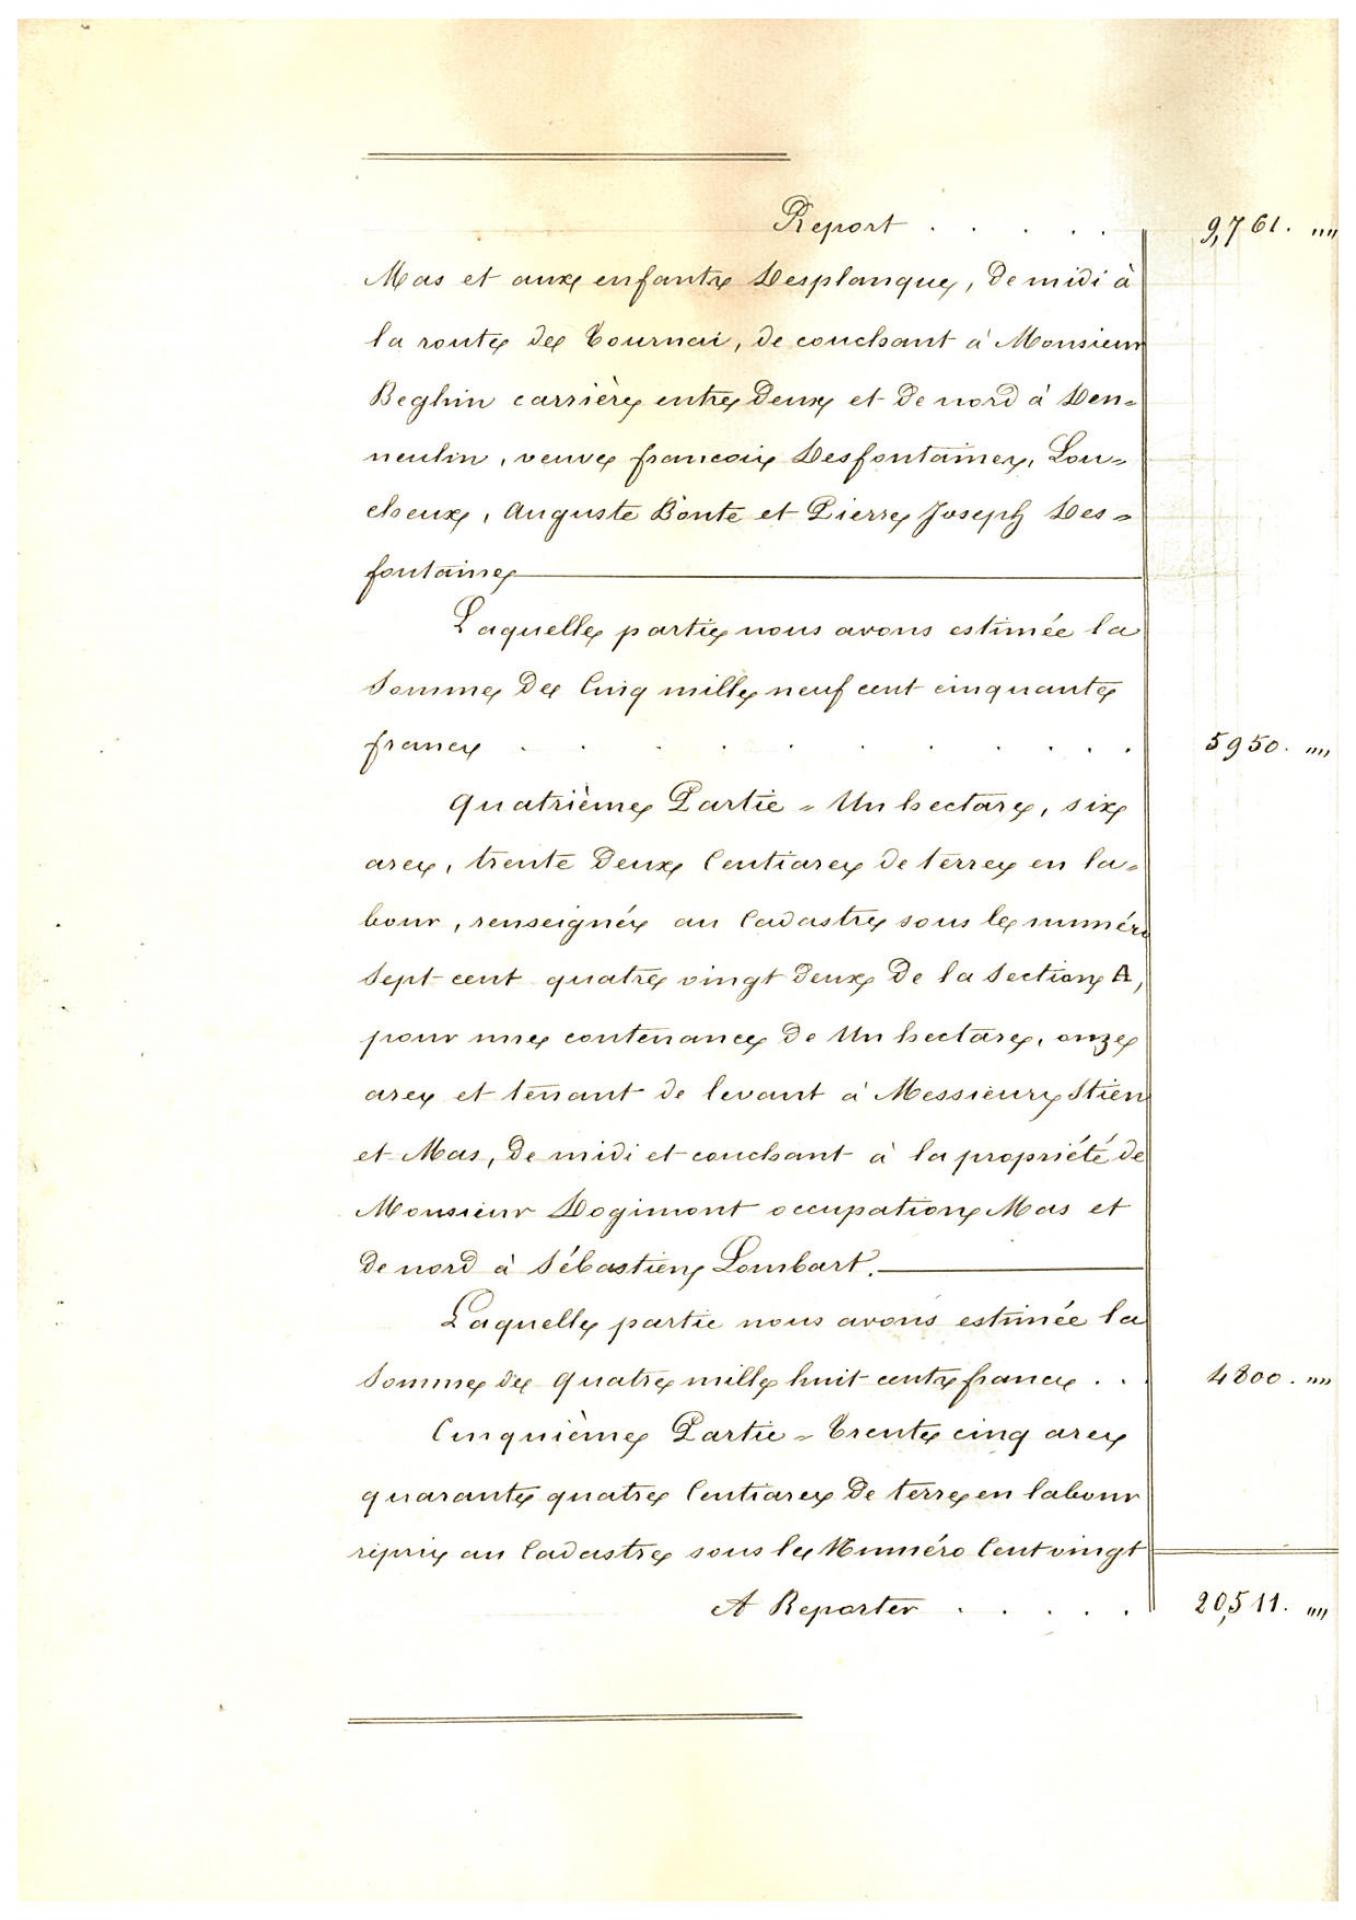 Report . . . . . 9,761. ""
Mas et aux enfants Desplanque, de midi à
la route de Tournai, de couchant à Monsieur
Beghin carrière entre deux et de nord à Den=
neulin, veuve francois Desfontaines, Lou=
cheux, Auguste Bonte et Pierre Joseph Des=
fontaines
Laquelle partie nous avons estimée la
Somme de Cinq mille neuf cent cinquante
francs . . . . . . . . . . 5950. ""
Quatrième Partie = Un hectare, six
ares, trente deux Centiares de terre en la=
bour, renseignée au Cadastre sous le numéro
Sept cent quatre vingt deux de la Section A,
pour une contenance de Un hectare, onze
ares et tenant de levant à Messieurs Stien
et Mas, de midi et couchant à la propriété de
Monsieur Dogimont occupation Mas et
de nord à Sébastien Lombart.
Laquelle partie nous avons estimée la
Somme de quatre mille huit cents francs . . . 4800. ""
Cinquième Partie = Trente cinq ares
quarante quatre Centiares de terre en labour
repris au Cadastre sous le Numéro Cent vingt
A Reporter . . . . . 20,511. ""